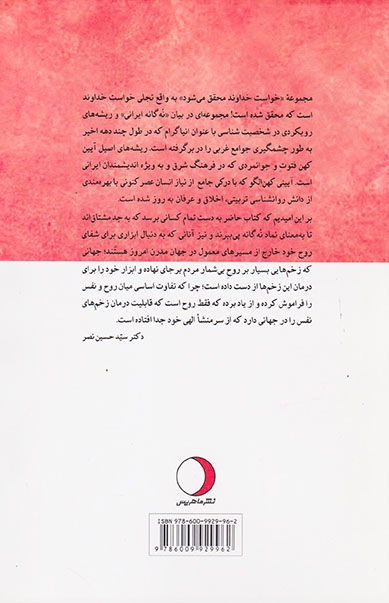 مجموعهٔ «خواست خداوند محقق می‌شود» به واقع تجلی خواست خداوند
است که محقق شده است! مجموعه‌ای در بیان «نُه‌گانه ایرانی» و ریشه‌های
رویکردی در شخصیت شناسی با عنوان انیاگرام که در طول چند دهه اخیر
به طور چشمگیری جوامع غربی را در برگرفته است. ریشه‌های اصیل آیین
کهن فتوت و جوانمردی که در فرهنگ شرق و به ویژه اندیشمندان ایرانی
است. آیینی کهن‌الگو که با درکی جامع از نیاز انسان عصر کنونی با بهره‌مندی
از دانش روانشناسی تربیتی، اخلاق و عرفان به روز شده است.
بر این امیدیم که کتاب حاضر به دست تمام کسانی برسد که به جد مشتاق‌اند
تا به معنای نماد نُه‌گانه پی‌ببرند و نیز آنانی که به دنبال ابزاری برای شفای
روح خود خارج از مسیرهای معمول در جهان مدرن امروز هستند؛ جهانی
که زخم‌هایی بسیار بر روح بی‌شمار مردم برجای نهاده و ابزار خود را برای
درمان این زخم‌ها از دست داده است؛ چرا که تفاوت اساسی میان روح و نفس
را فراموش کرده و از یاد برده که فقط روح است که قابلیت درمان زخم‌های
نفس را در جهانی دارد که از سرمنشأ الهی خود جدا افتاده است.
دکتر سیّد حسین نصر
نشر ماهریس
ISBN 978-600-9929-96-2
9 786009 929962